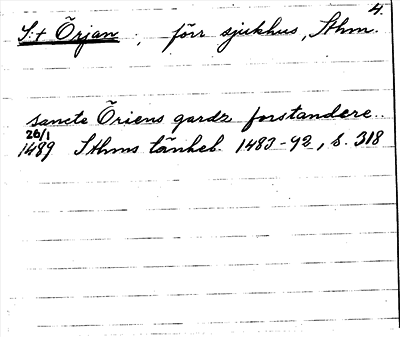 4.
S:t Örjan, förr sjukhus, Sthm.
sancte Öriens gardz forstandere..
26/1
1489 Sthms tänkeb. 1483-92, s. 318